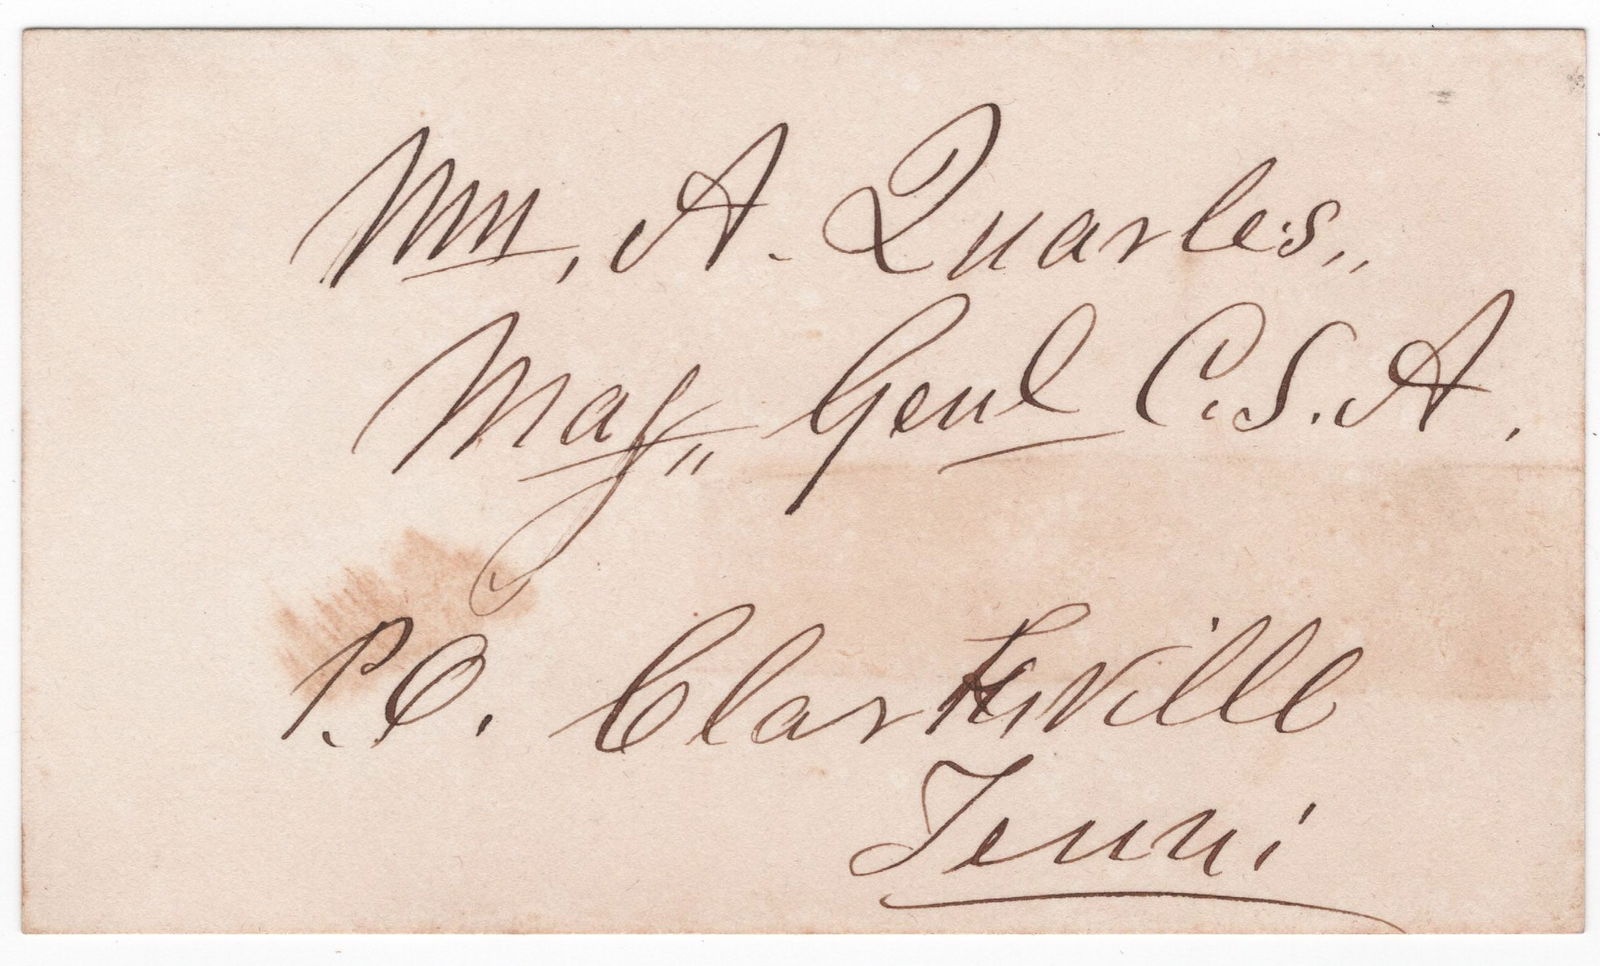 Wm, A. Quarles,,
Maj,, Genl C.S.A.
P.O. Clarksville
Tenn;